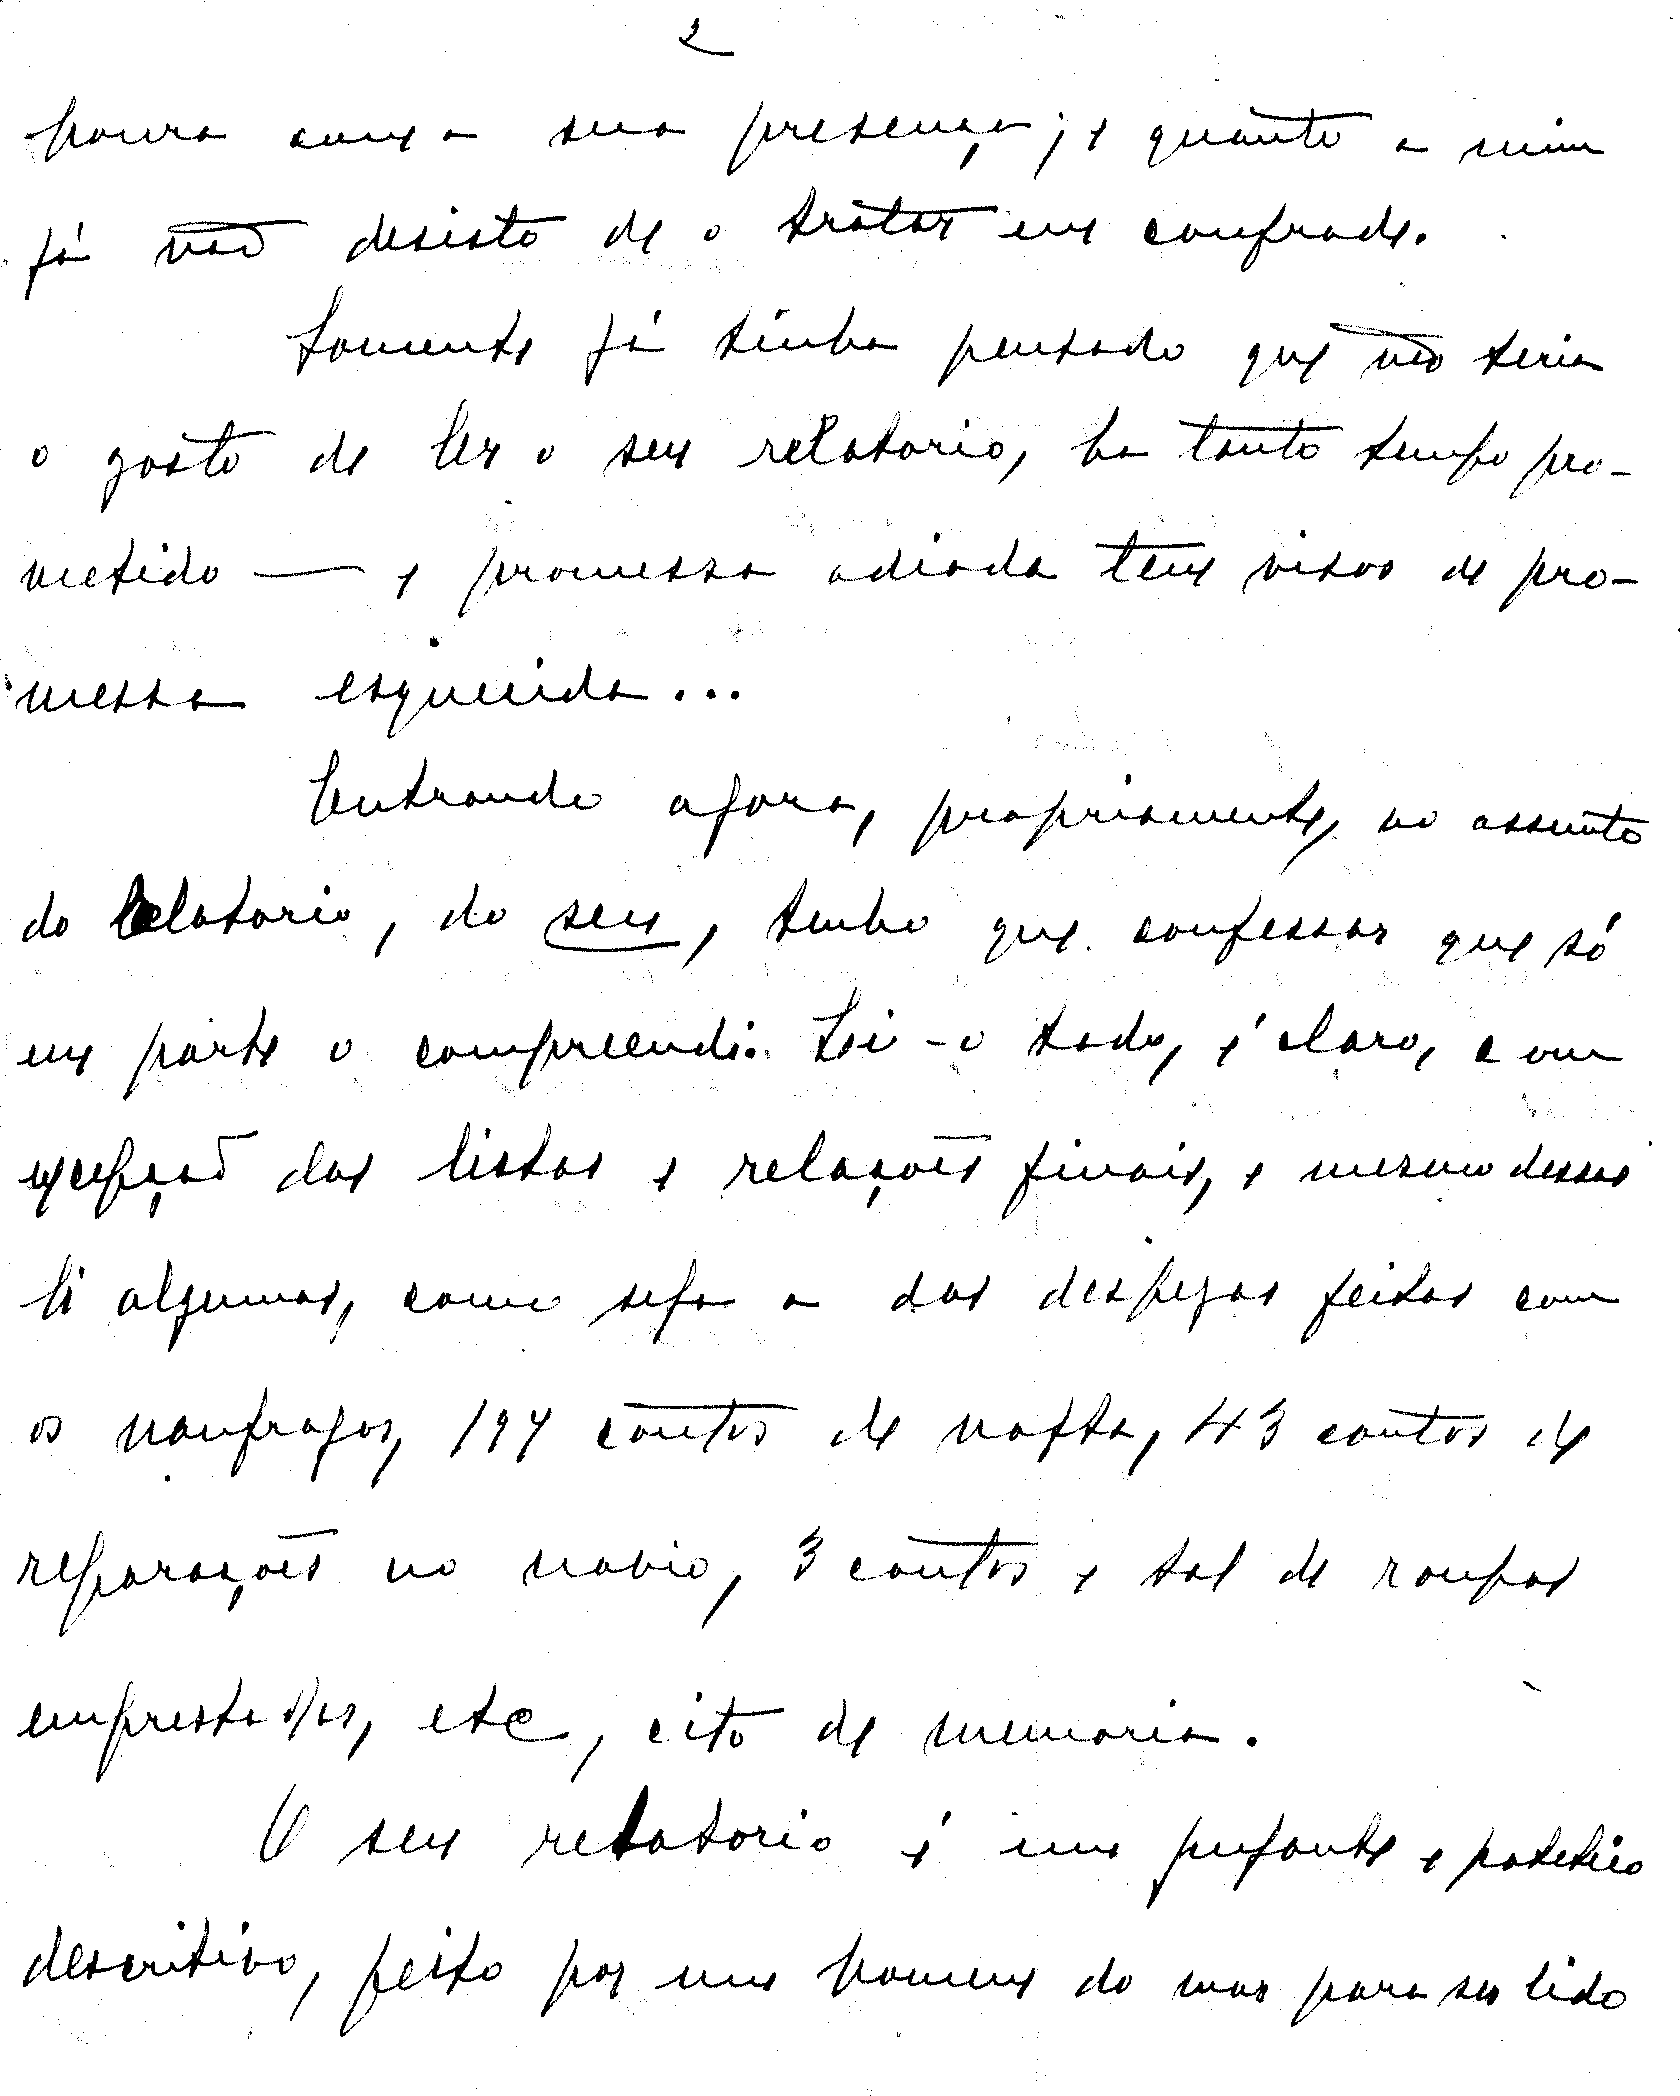 2
honra com a sua presença; e quanto a mim
já não desisto de o tratar em confrade.
Somente já tinha pensado que não teria
o gosto de ler o seu relatorio, ha tanto tempo pro-
metido — e promessa adiada tem visos de pro-
messa esquecida...
Entrando agora, propriamente, no assunto
do Relatorio, do seu, tenho que confessar que só
em parte o compreendi. Li-o todo, é claro, com
excepção das listas e relações finais, e mesmo dessas
li algumas, como seja a das despezas feitas com
os naufragos, 197 contos de nafta, 43 contos de
reparações no navio, 3 contos e tal de roupas
emprestadas, etc, cito de memoria.
O seu relatorio é um pujante e patetico
descritivo, feito por um homem do mar para ser lido